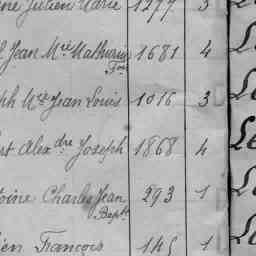 ine Julien Marie 1277 3
l Jean Mie Mathurin 1681 4
Fois
ph Mie Jean Louis 1016 3
rt Alexdre Joseph 1868 4
toine Charles Jean 293 1
Bapte
ien François 145 1